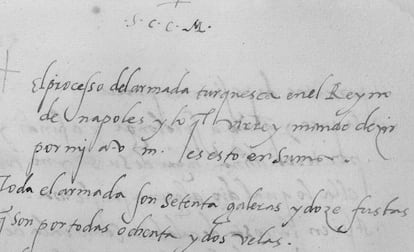 . S . C . C . M .
El processo del armada turquesca en el Reyno
de napoles y lo q̃ l virrey mando dezir
por my a v m. es esto en sumor.
Toda el armada son setenta galeras y doze fustas
q̃ son por todas ochẽta y dos velas.